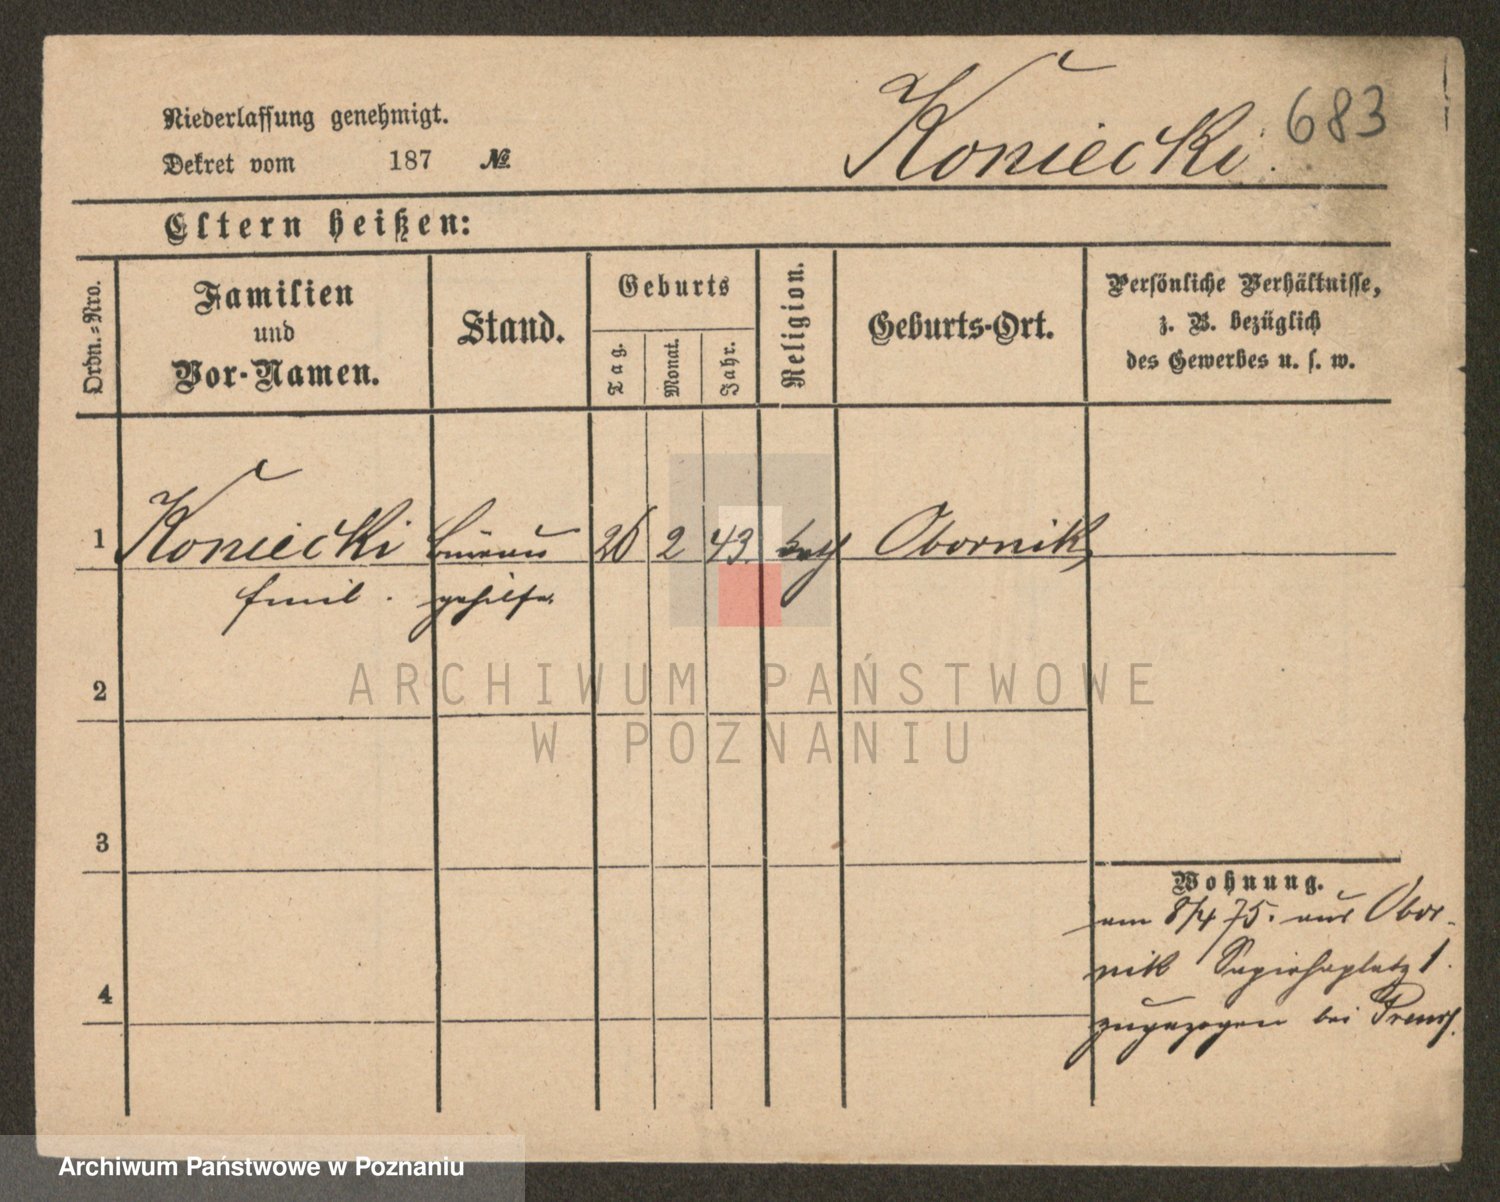 Niederlassung genehmigt.
Dekret vom 187 №
Koniecki
683
Eltern heißen:
Ordn.-Nro.
Familien
und
Vor-Namen.
Stand.
Geburts
Tag.
Monat.
Jahr.
Religion.
Geburts-Ort.
Persönliche Verhältnisse,
z. B. bezüglich
des Gewerbes u. s. w.
1 Koniecki Büreau 2 43. kath Obornik
Emil. gehilfe.
2
ARCHIWUM PAŃSTWOWE
W POZNANIU
3
4
Wohnung.
am 8/4 75. aus Obor-
nik Sapiehaplatz 1.
zugezogen bei
Archiwum Państwowe w Poznaniu